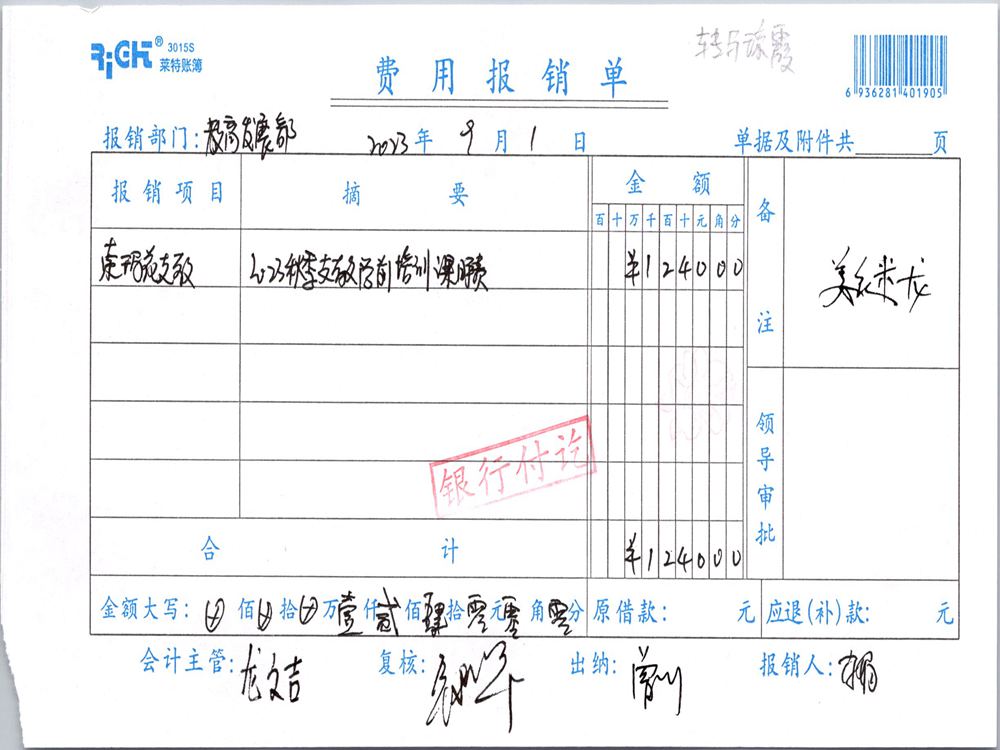 RiCH® 3015S
莱特账簿
费用报销单
转与琼霞
6 936281 401905
报销部门:教育发展部 2023年9月1日 单据及附件共 页
报销项目 摘要 金额 备注
百十万千百十元角分
支教 2023秋季支教学前培训课时费 ¥124000
银行付讫
领导审批
合计 ¥124000
金额大写: 佰 拾 万壹仟贰佰肆拾零元零角零分 原借款: 元 应退(补)款: 元
会计主管:龙文吉 复核: 出纳: 报销人: